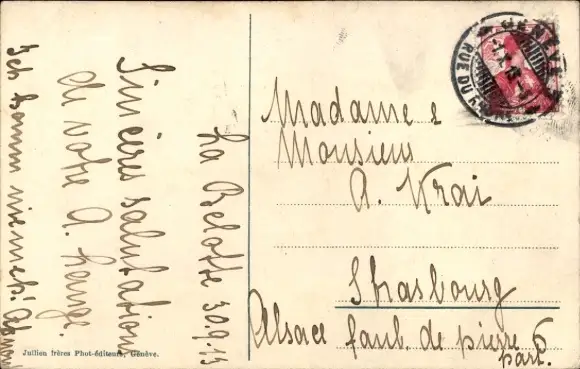 La Belotte 30.9.13
Sincères salutations
de votre A. Lange.
Ich komm
Madame &
Monsieur
A. Krai
Strasbourg
Alsace faub. de pierre 6
part.
GENÈVE
RUE DU
Jullien frères Phot-éditeurs, Genève.